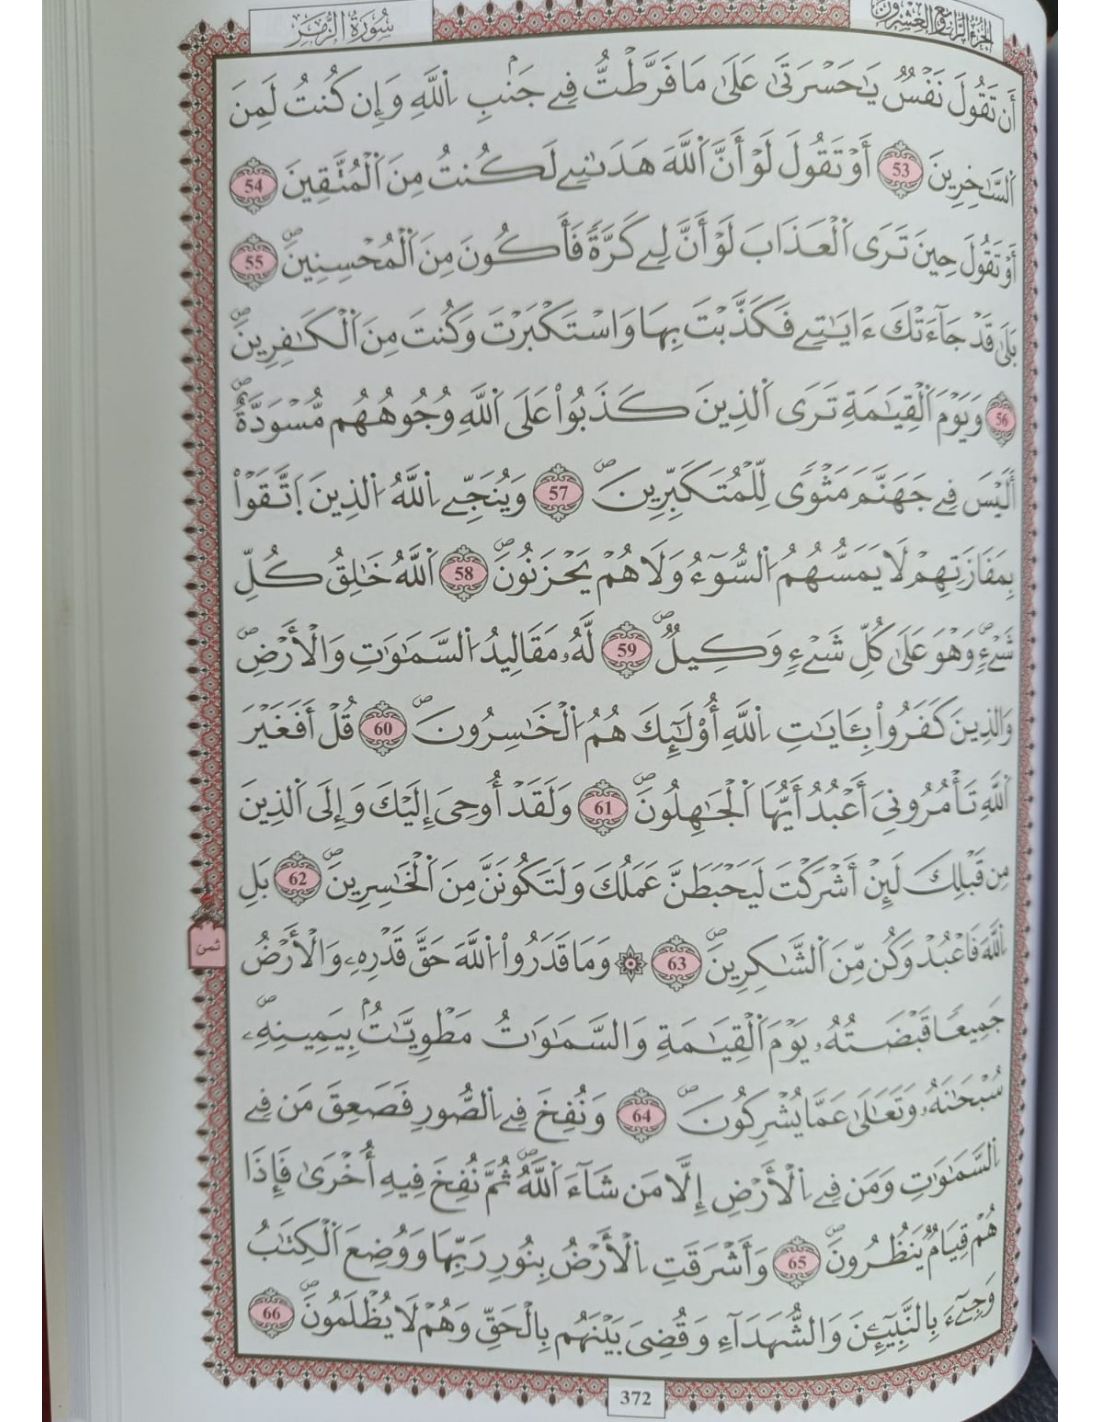 الجزء الرابع والعشرون
سُورَةُ الزُّمَرِ
أَن تَقُولَ نَفْسٌ يَٰحَسْرَتَىٰ عَلَىٰ مَا فَرَّطتُّ فِے جَنۢبِ اِ۬للَّهِ وَإِن كُنتُ لَمِنَ
اَ۬لسَّٰخِرِينَ 53 أَوْ تَقُولَ لَوْ أَنَّ اَ۬للَّهَ هَدَىٰنِے لَكُنتُ مِنَ اَ۬لْمُتَّقِينَ 54
أَوْ تَقُولَ حِينَ تَرَى اَ۬لْعَذَابَ لَوْ أَنَّ لِے كَرَّةٗ فَأَكُونَ مِنَ اَ۬لْمُحْسِنِينَۖ 55
بَلَىٰ قَدْ جَآءَتْكَ ءَايَٰتِے فَكَذَّبْتَ بِهَا وَاسْتَكْبَرْتَ وَكُنتَ مِنَ اَ۬لْكَٰفِرِينَۖ
56 وَيَوْمَ اَ۬لْقِيَٰمَةِ تَرَى اَ۬لذِينَ كَذَبُواْ عَلَى اَ۬للَّهِ وُجُوهُهُم مُّسْوَدَّةٌۖ
أَلَيْسَ فِے جَهَنَّمَ مَثْوىٗ لِّلْمُتَكَبِّرِينَۖ 57 وَيُنَجِّے اِ۬للَّهُ اُ۬لذِينَ اَ۪تَّقَوْاْ
بِمَفَازَتِهِمْ لَا يَمَسُّهُمُ اُ۬لسُّوٓءُ وَلَا هُمْ يَحْزَنُونَۖ 58 اَ۬للَّهُ خَٰلِقُ كُلِّ
شَےْءٖۖ وَهْوَ عَلَىٰ كُلِّ شَےْءٖ وَكِيلٞۖ 59 لَّهُۥ مَقَالِيدُ اُ۬لسَّمَٰوَٰتِ وَالْأَرْضِۖ
وَالذِينَ كَفَرُواْ بِـَٔايَٰتِ اِ۬للَّهِ أُوْلَٰٓئِكَ هُمُ اُ۬لْخَٰسِرُونَۖ 60 قُلْ أَفَغَيْرَ
اَ۬للَّهِ تَأْمُرُونِيَ أَعْبُدُ أَيُّهَا اَ۬لْجَٰهِلُونَۖ 61 وَلَقَدْ أُوحِيَ إِلَيْكَ وَإِلَى اَ۬لذِينَ
مِن قَبْلِكَ لَئِنْ أَشْرَكْتَ لَيَحْبَطَنَّ عَمَلُكَ وَلَتَكُونَنَّ مِنَ اَ۬لْخَٰسِرِينَۖ 62 بَلِ
اِ۬للَّهَ فَاعْبُدْ وَكُن مِّنَ اَ۬لشَّٰكِرِينَۖ 63 ۞ وَمَا قَدَرُواْ اُ۬للَّهَ حَقَّ قَدْرِهِۦ وَالْأَرْضُ
ثمن
جَمِيعاٗ قَبْضَتُهُۥ يَوْمَ اَ۬لْقِيَٰمَةِ وَالسَّمَٰوَٰتُ مَطْوِيَّٰتُۢ بِيَمِينِهِۦۖ
سُبْحَٰنَهُۥ وَتَعَٰلَىٰ عَمَّا يُشْرِكُونَۖ 64 وَنُفِخَ فِے اِ۬لصُّورِ فَصَعِقَ مَن فِے
اِ۬لسَّمَٰوَٰتِ وَمَن فِے اِ۬لْأَرْضِ إِلَّا مَن شَآءَ اَ۬للَّهُۖ ثُمَّ نُفِخَ فِيهِ أُخْرَىٰ فَإِذَا
هُمْ قِيَامٞ يَنظُرُونَۖ 65 وَأَشْرَقَتِ اِ۬لْأَرْضُ بِنُورِ رَبِّهَا وَوُضِعَ اَ۬لْكِتَٰبُ
وَجِےٓءَ بِالنَّبِيٓـِٕينَ وَالشُّهَدَآءِ وَقُضِيَ بَيْنَهُم بِالْحَقِّ وَهُمْ لَا يُظْلَمُونَۖ 66
372